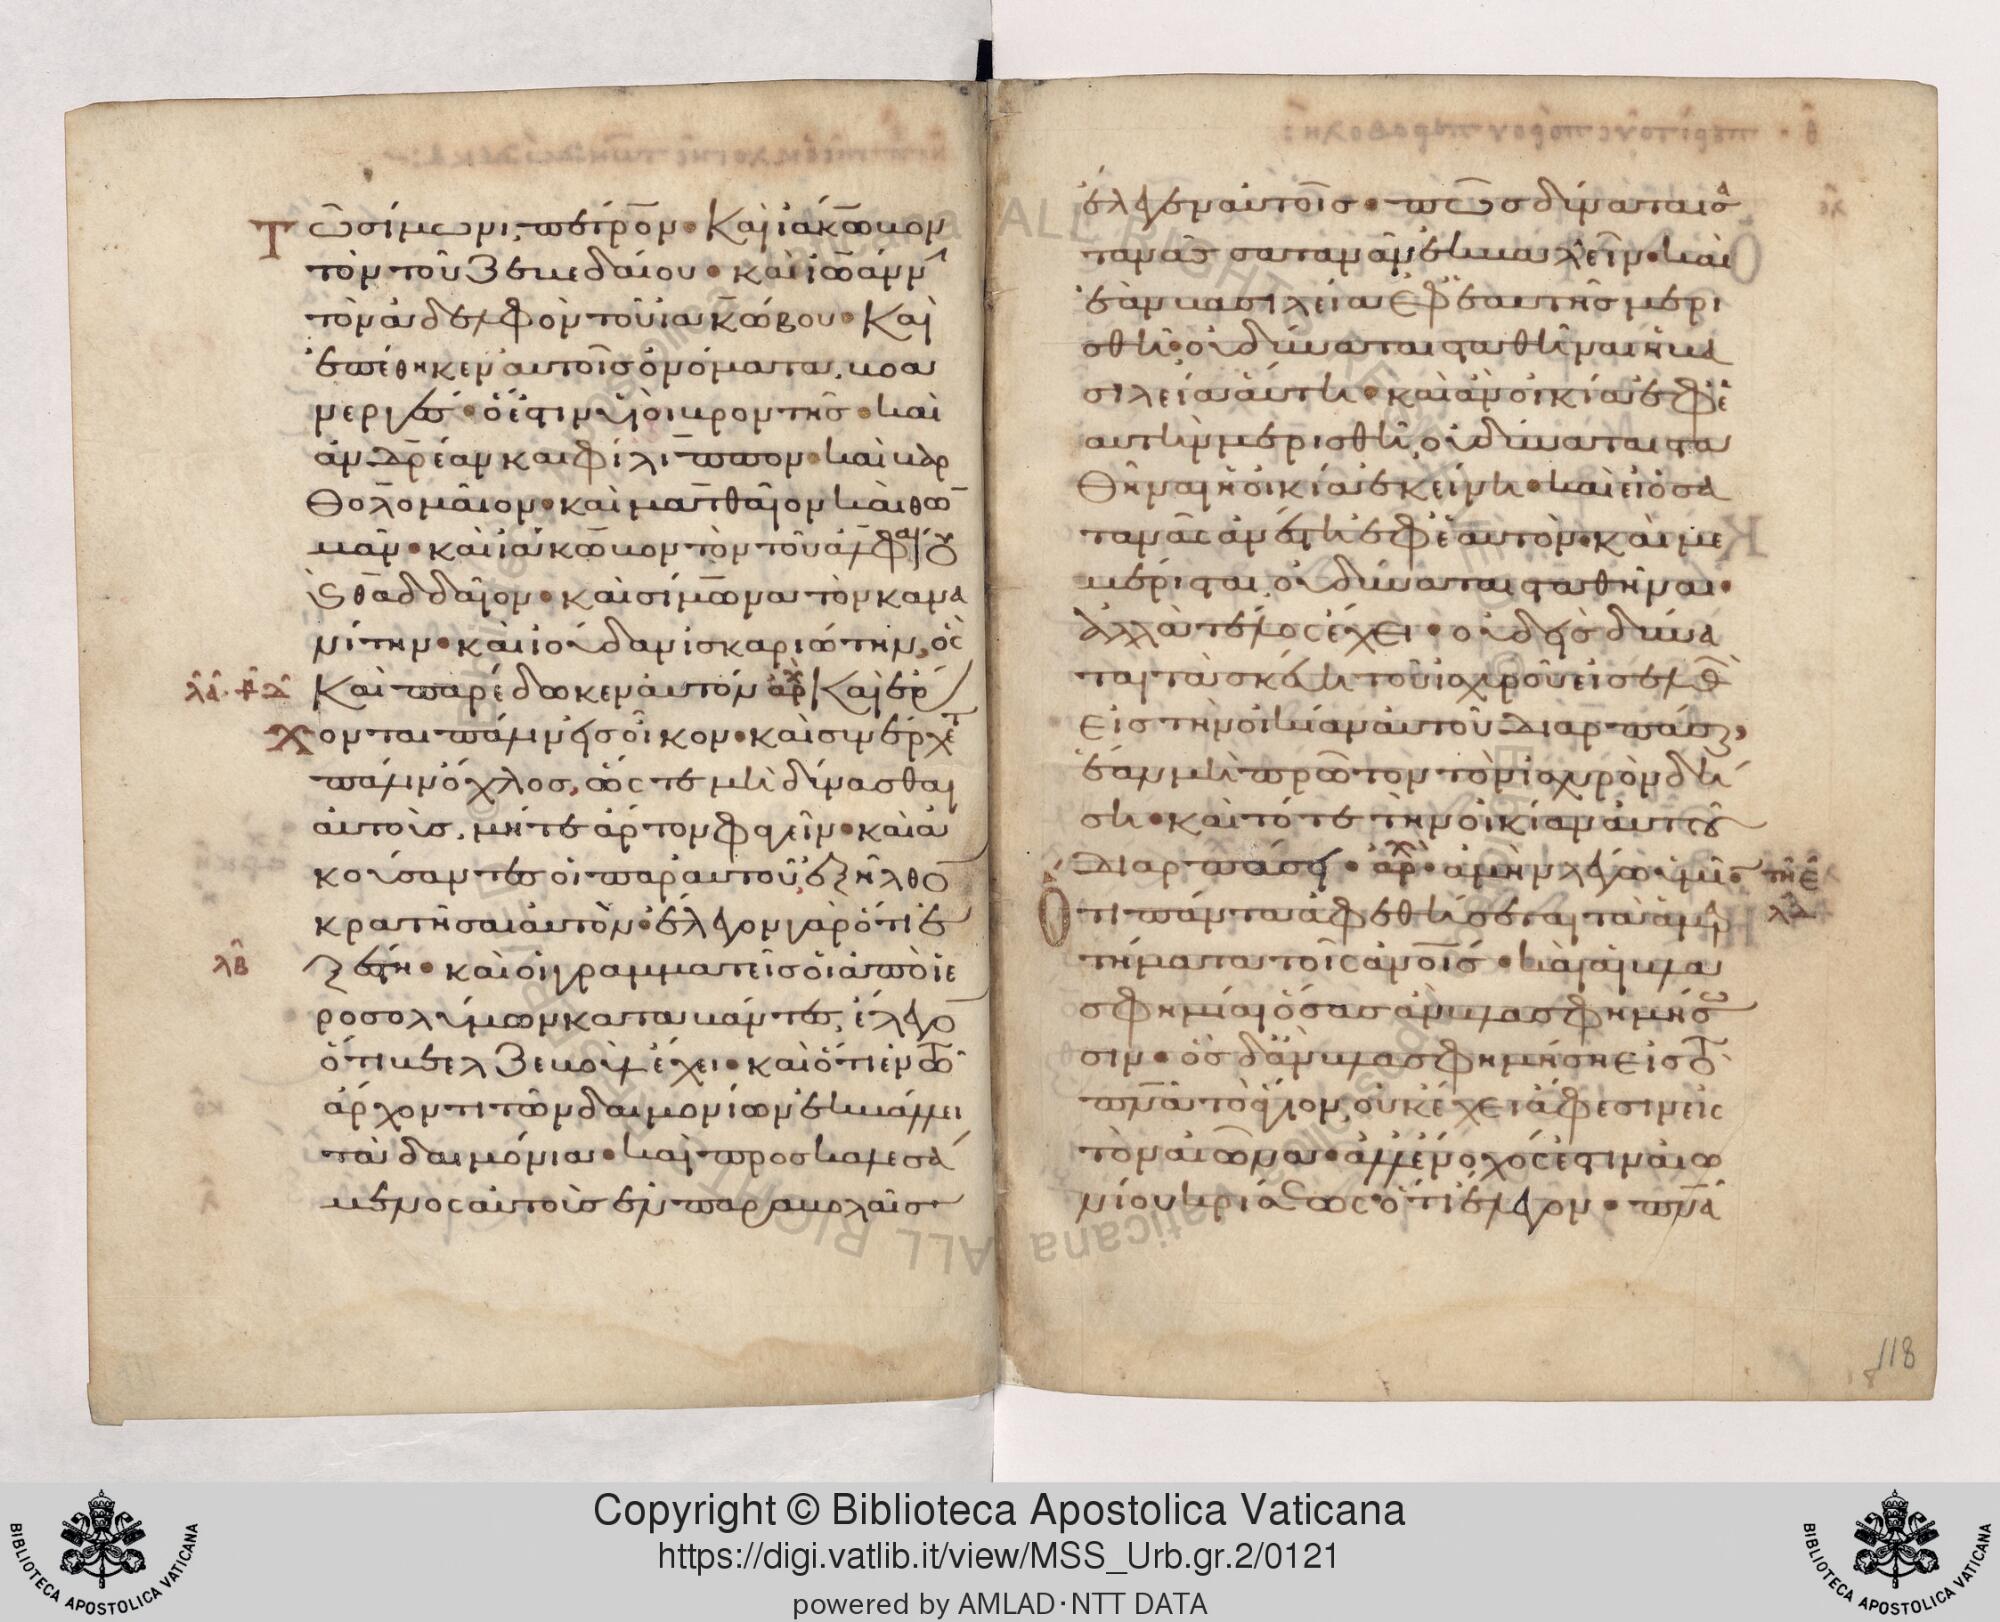 Τῶ σίμωνι, πέτρον· Καὶ ϊάκωβον
τὸν τοῦ Ζεβεδαίου· καὶ ϊωάννην
τὸν ἀδελφὸν τοῦ ϊακώβου· Καὶ
ἐπέθηκεν αὐτοῖς ὀνόματα, βοα
νεργὲς· ὅ ἐστιν υἱοὶ βροντῆς· καὶ
ἀνδρέαν και φίλιππον· καὶ βαρ
θολομαῖον· καὶ ματθαῖον καὶ θω
μᾶν· καὶ ϊάκωβον τὸν τοῦ ἀλφαίου
καὶ θαδδαῖον· καὶ σίμωνα τὸν κανα
νίτην· καὶ ϊούδαν ϊσκαριώτην, ὃς
λα κδ Καὶ παρέδωκεν αὐτόν αρχ Καὶ ἔρ
χονται πάλιν εἰς οἶκον· καὶ συνέρχετ
πάλιν ὄχλος, ὥστε μὴ δύνασθαι
αὐτοὺς, μήτε ἄρτον φαγεῖν· καὶ ἀ
κούσαντες οἱ παρ αὐτοῦ, ἐξῆλθον
κρατῆσαι αὐτὸν· ἔλεγον γὰρ ὅτι ἐ
λβ ξέστη· καὶ οἱ γραμματεῖς οἱ ἀπὸ ἱε
ροσολύμων καταβάντες, ἔλεγον
ὅτι βεελζεβοὺλ ἔχει· καὶ ὅτι ἐν τῶ
ἄρχοντι τῶν δαιμονίων ἐκβάλλει
τὰ δαιμόνια· καὶ προσκαλεσά
μενος αὐτοὺς ἐν παραβολαῖς
ἔλεγεν αὐτοῖς· πῶς δύναται σα
τανᾶς σατανᾶν ἐκβαλεῖν· καὶ
ἐὰν βασιλεία ἐφ ἑαυτὴν μερι
σθῆ· οὐ δύναται σταθῆναι ἡ βα
σιλεία αὐτη· καὶ ἐὰν οἰκία ἐφ ἑ
αυτὴν μερισθῆ, οὐ δύναται στα
θῆναι ἡ οἰκία ἐκείνη· καὶ εἰ ὁ σα
τανᾶς ἀνέστη ἐφ ἑαυτὸν· καὶ με
μέρισται, οὐ δύναται σταθῆναι·
Ἀλλὰ τέλος ἔχει· οὐδεὶς δύνα
ται τὰ σκεύη τοῦ ϊσχυροῦ εἰσελθὼν
εἰς τὴν οἰκίαν αὐτοῦ διαρπάσαι,
ἐὰν μὴ πρῶτον τὸν ϊσχυρὸν δή
ση· καὶ τότε τὴν οἰκίαν αὐτοῦ
διαρπάσει· αρχ· ἀμὴν λέγω ὑμῖν
Ὅτι πάντα ἀφεθήσεται τὰ ἁμαρ
τήματα τοῖς ἀνοις· καὶ αἱ βλα
σφημίαι ὅσας ἂν βλασφημήσω
σιν· ὃς δ ἂν βλασφημήση εἰς τὸ
πνα τὸ ἅγιον, οὐκ ἔχει ἄφεσιν εἰς
τὸν αἰῶνα· ἀλλ ἔνοχός ἐστιν αἰω
νίου κρίσεως· ὅτι ἔλεγον· πνα
118
Copyright © Biblioteca Apostolica Vaticana
https://digi.vatlib.it/view/MSS_Urb.gr.2/0121
powered by AMLAD·NTT DATA
BIBLIOTECA APOSTOLICA VATICANA
BIBLIOTECA APOSTOLICA VATICANA